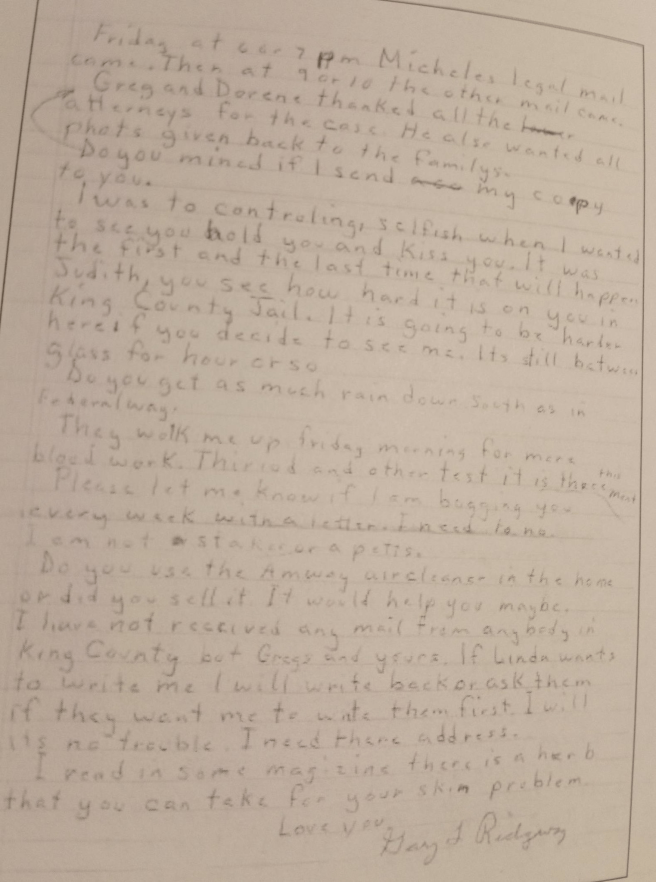 Friday at 6 or 7 pm Micheles legal mail
came. Then at 9 or 10 the other mail came.
Greg and Dorene thanked all the
atterneys for the case. He also wanted all
phots given back to the familys.
Do you mined if I send my copy
to you.
I was to controling, selfish when I wanted
to see you hold you and kiss you. It was
the first and the last time that will happen
Judith, you see how hard it is on you in
King County Jail. It is going to be harder
here if you decide to see me. Its still between
glass for hour or so
Do you get as much rain down south as in
Federalway.
They wolk me up friday morning for more
blood work. Thiriod and other test it is this month
Please let me know if I am bugging you
every week with a letter. I need to no.
I am not a staker or a
Do you use the Amway aircleaner in the home
or did you sell it. It would help you maybe.
I have not received any mail from anybody in
King County but Gregs and yours. If Linda wants
to write me I will write back or ask them
if they want me to write them first. I will
its no trouble. I need there address.
I read in some magizine there is a herb
that you can take for your skin problem.
Love you,
Gary L Ridgway